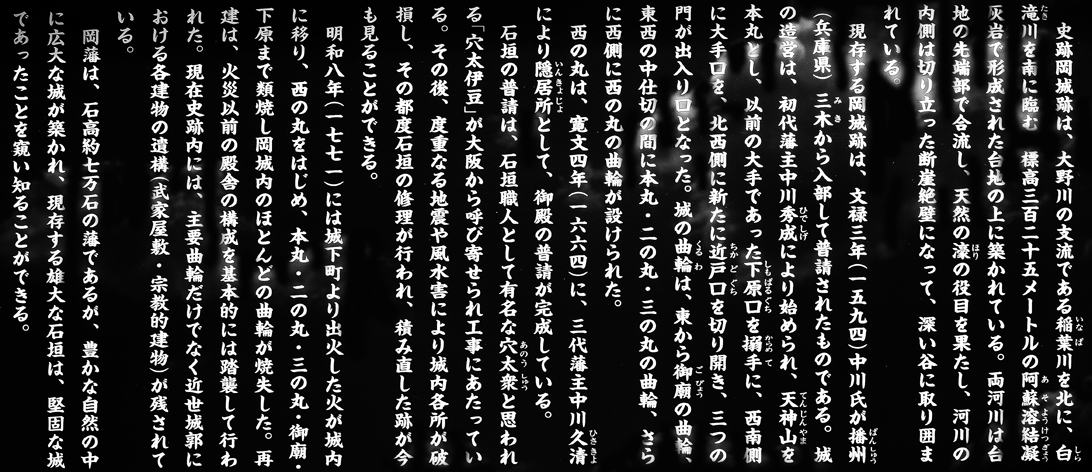 史跡岡城跡は、大野川の支流である稲葉川を北に、白
滝川を南に臨む 標高三百二十五メートルの阿蘇溶結凝
灰岩で形成された台地の上に築かれている。両河川は台
地の先端部で合流し、天然の濠の役目を果たし、河川の
内側は切り立った断崖絶壁になって、深い谷に取り囲ま
れている。
現存する岡城跡は、文禄三年(一五九四)中川氏が播州
(兵庫県)三木から入部して普請されたものである。城
の造営は、初代藩主中川秀成により始められ、天神山を
本丸とし、以前の大手であった下原口を搦手に、西南側
に大手口を、北西側に新たに近戸口を切り開き、三つの
門が出入り口となった。城の曲輪は、東から御廟の曲輪、
東西の中仕切の間に本丸・二の丸・三の丸の曲輪、さら
に西側に西の丸の曲輪が設けられた。
西の丸は、寛文四年(一六六四)に、三代藩主中川久清
により隠居所として、御殿の普請が完成している。
石垣の普請は、石垣職人として有名な穴太衆と思われ
る「穴太伊豆」が大阪から呼び寄せられ工事にあたってい
る。その後、度重なる地震や風水害により城内各所が破
損し、その都度石垣の修理が行われ、積み直した跡が今
も見ることができる。
明和八年(一七七一)には城下町より出火した火が城内
に移り、西の丸をはじめ、本丸・二の丸・三の丸・御廟・
下原まで類焼し岡城内のほとんどの曲輪が焼失した。再
建は、火災以前の殿舎の構成を基本的には踏襲して行わ
れた。現在史跡内には、主要曲輪だけでなく近世城郭に
おける各建物の遺構(武家屋敷・宗教的建物)が残されて
いる。
岡藩は、石高約七万石の藩であるが、豊かな自然の中
に広大な城が築かれ、現存する雄大な石垣は、堅固な城
であったことを窺い知ることができる。